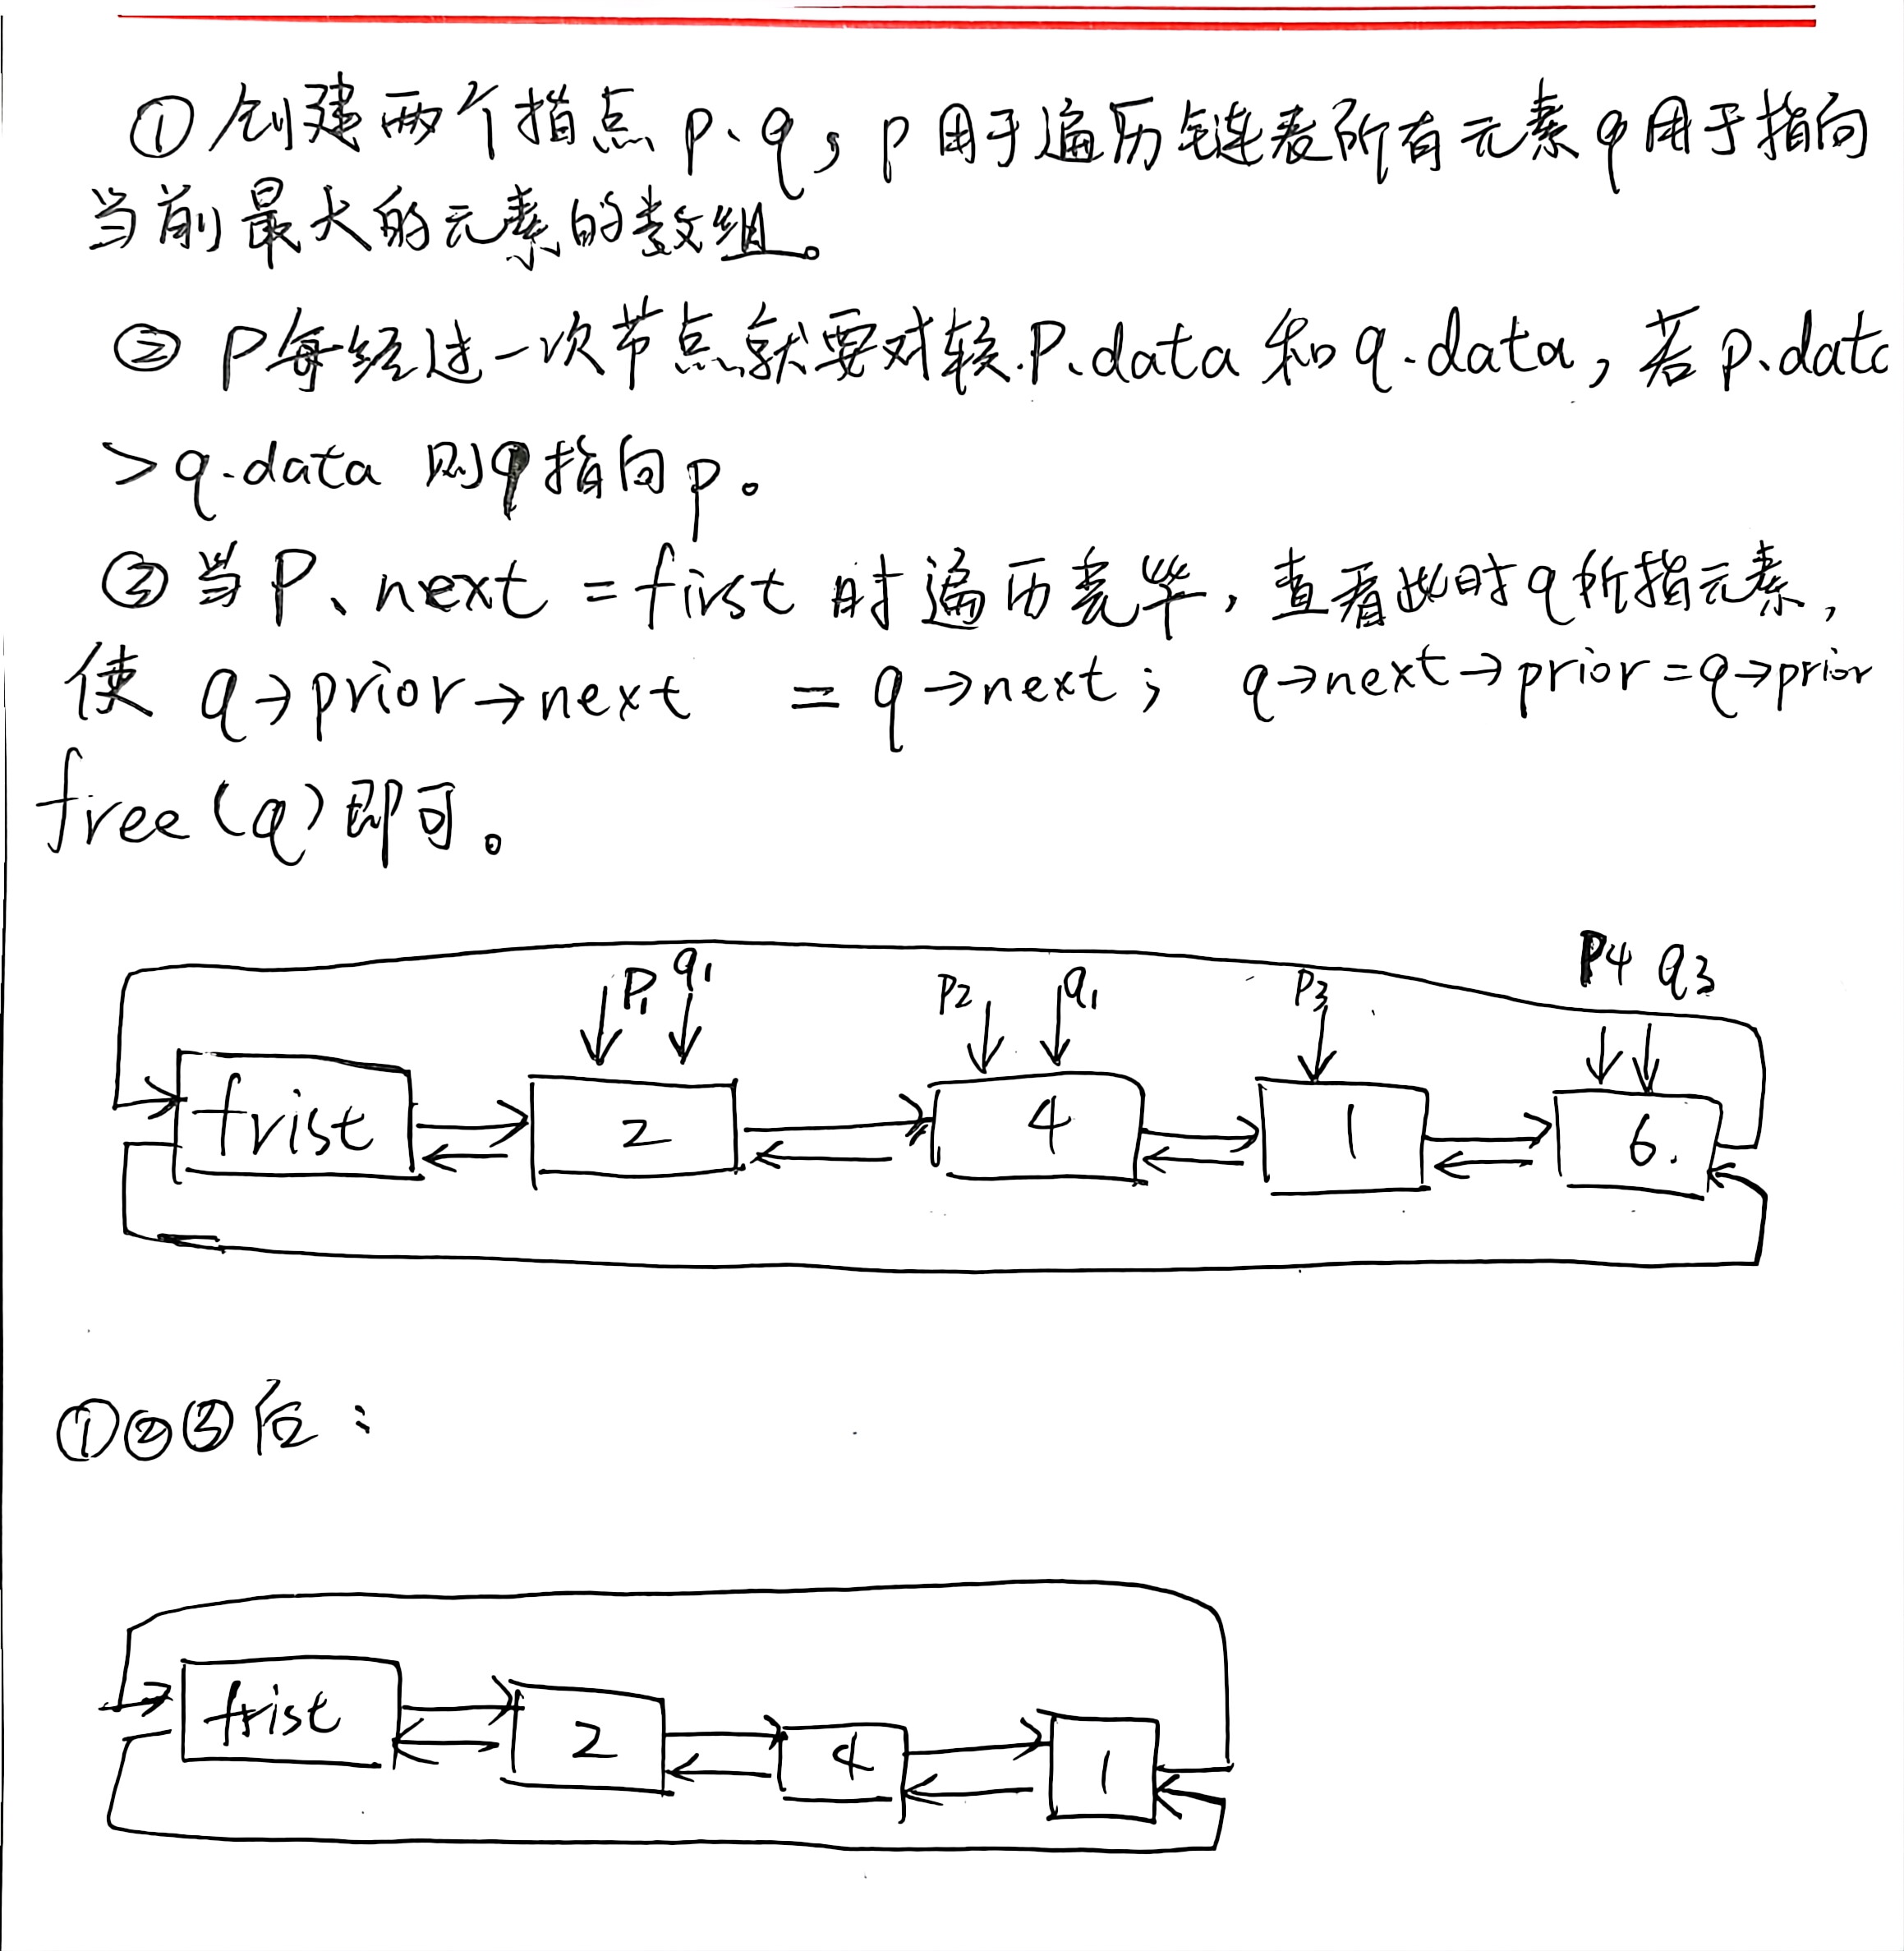 ①创建两个指点 p、q，p用于遍历链表所有元素q用于指向
当前最大的元素的数组。
② P每经过一次节点就要对较.P.data 和 q.data，若 p.data
>q.data 则q指向p。
③当P、next =first 时遍历完毕，查看此时q所指元素，
使 q→prior→next = q→next； q→next→prior=q→prior
free(q)即可。
P4 q3
P1 q1 P2 q1 P3
frist 2 4 1 6.
①②③后：
frist 2 4 1